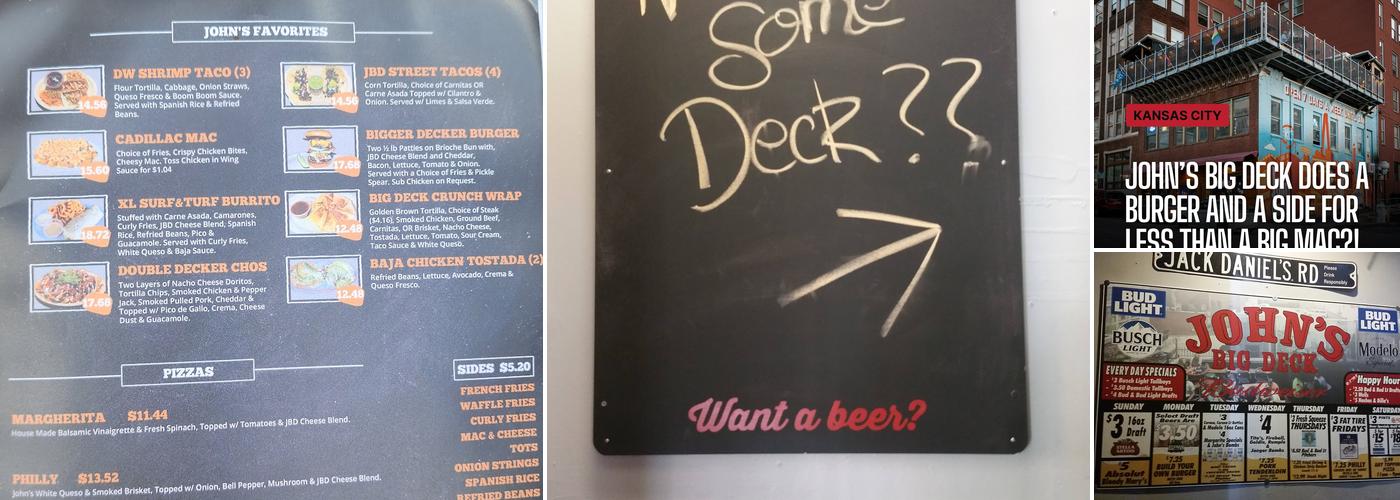 JOHN'S FAVORITES
DW SHRIMP TACO (3)
Flour Tortilla, Cabbage, Onion Straws,
Queso Fresco & Boom Boom Sauce.
Served with Spanish Rice & Refried
Beans.
14.56
CADILLAC MAC
Choice of Fries, Crispy Chicken Bites,
Cheesy Mac. Toss Chicken in Wing
Sauce for $1.04
15.60
XL SURF&TURF BURRITO
Stuffed with Carne Asada, Camarones,
Curly Fries, JBD Cheese Blend, Spanish
Rice, Refried Beans, Pico &
Guacamole. Served with Curly Fries,
White Queso & Baja Sauce.
18.72
DOUBLE DECKER CHOS
Two Layers of Nacho Cheese Doritos,
Tortilla Chips, Smoked Chicken & Pepper
Jack, Smoked Pulled Pork, Cheddar &
Topped w/ Pico de Gallo, Crema, Cheese
Dust & Guacamole.
17.68
JBD STREET TACOS (4)
Corn Tortilla, Choice of Carnitas OR
Carne Asada Topped w/ Cilantro &
Onion. Served w/ Limes & Salsa Verde.
14.56
BIGGER DECKER BURGER
Two ½ lb Patties on Brioche Bun with,
JBD Cheese Blend and Cheddar,
Bacon, Lettuce, Tomato & Onion.
Served with a Choice of Fries & Pickle
Spear. Sub Chicken on Request.
17.68
BIG DECK CRUNCH WRAP
Golden Brown Tortilla, Choice of Steak
($4.16), Smoked Chicken, Ground Beef,
Carnitas, OR Brisket, Nacho Cheese,
Tostada, Lettuce, Tomato, Sour Cream,
Taco Sauce & White Queso.
12.48
BAJA CHICKEN TOSTADA (2)
Refried Beans, Lettuce, Avocado, Crema &
Queso Fresco.
12.48
PIZZAS
MARGHERITA $11.44
House Made Balsamic Vinaigrette & Fresh Spinach, Topped w/ Tomatoes & JBD Cheese Blend.
PHILLY $13.52
John's White Queso & Smoked Brisket, Topped w/ Onion, Bell Pepper, Mushroom & JBD Cheese Blend.
SIDES $5.20
FRENCH FRIES
WAFFLE FRIES
CURLY FRIES
MAC & CHEESE
TOTS
ONION STRINGS
SPANISH RICE
REFRIED BEANS
Some
Deck??
Want a beer?
OPEN 7 DAYS A WEEK
KANSAS CITY
JOHN'S BIG DECK DOES A
BURGER AND A SIDE FOR
LESS THAN A BIG MAC?!
JACK DANIEL'S RD
Please
Drink
Responsibly
BUD
LIGHT
BUSCH
LIGHT
JOHN'S
BIG DECK
BUD
LIGHT
Modelo
EVERY DAY SPECIALS
$3 Busch Light Tallboys
$3.50 Domestic Tallboys
$4 Bud & Bud Light Drafts
Happy Hou
SUNDAY
MONDAY
TUESDAY
WEDNESDAY
THURSDAY
FRIDAY
SATURDA
$3 16oz
Draft
$5
Absolut
Bloody Mary's
Select Draft
Beers Are
$3.50
$7.25
BUILD YOUR
OWN BURGER
$4
$7.25
PORK
TENDERLOIN
$3 FAT TIRE
FRIDAYS
$7.25 PHILLY